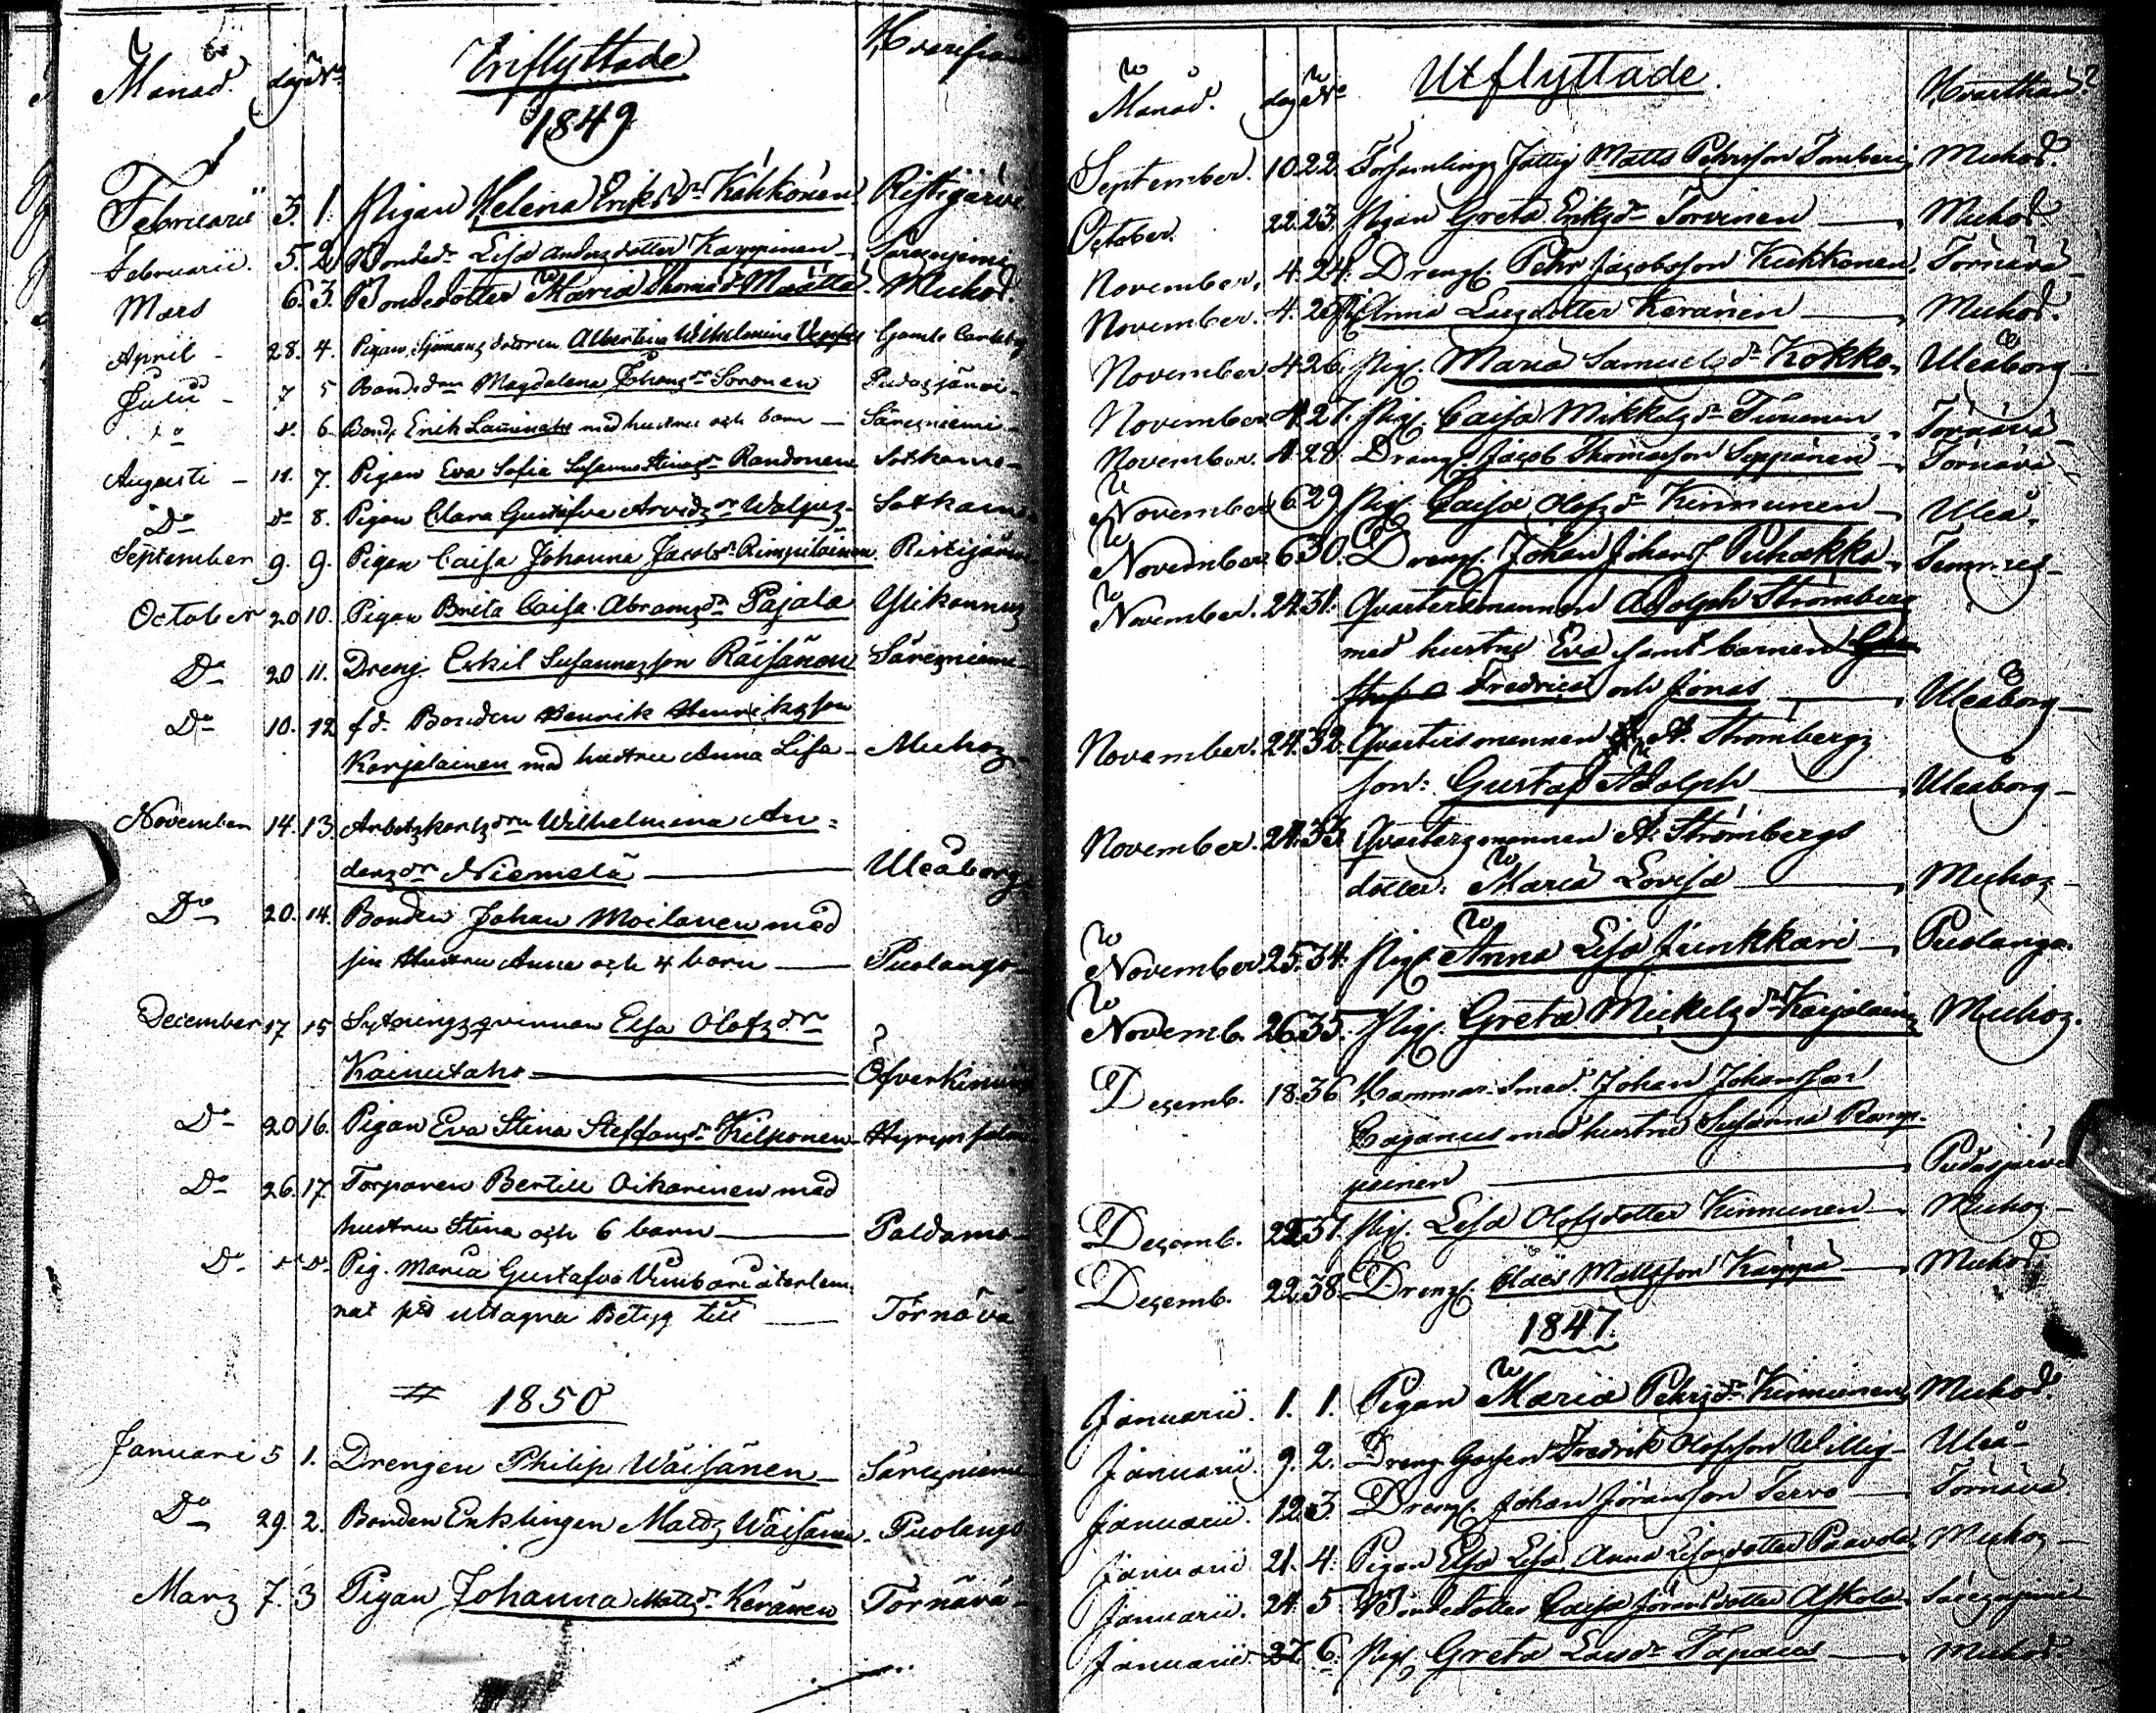 Månad. dag No Inflyttade Hvarifrån
1849
Februarii 3. 1. Pigan Helena Eriksdr Kokkonen Ristijärvi
Februarii. 5. 2. Bondedr Lisa Andersdotter Karppinen Säresniemi
Mars 6. 3. Bondedotter Maria Thomasdr Määttä Muhos.
April 28. 4. Pigan, Sjömans dottren Albertina Wilhelmina Gamle Carleby
Julii 7 5 Bondedrn Magdalena Johansdr Soronen Pudasjärvi
do do 6. Bond. Erik med hustru och barn Säresniemi
Augusti 11. 7. Pigan Eva Sofia Susanna Stinasdr Randonen Sotkamo
Do do 8. Pigan Clara Gustafva Arvidsdr Waljus Sotkamo
September 9. 9. Pigan Caisa Johanna Jacobsdr Rimpiläinen Ristijärvi
October 20 10. Pigan Brita Caisa Abramsdr Pajala Ylikannus
Do 20 11. Dreng. Eskil Susannasson Räisänen Säresniemi
Do 10. 12 fd. Bonden Henrik Henriksson
Karjalainen med hustru Anna Lisa Muhos
November 14. 13. Arbetskarlsdrn Wilhelmina An=
dersdr Niemelä Uleåborg
Do 20. 14. Bonden Johan Moilanen med
sin Hustru Anna och 4 barn Puolango
December 17 15 Sytningsqvinnan Elsa Olofsdr
Kainutaho Öfverkiminge
Do 20 16. Pigan Eva Stina Steffansdr Kilponen Hyrynsalmi
Do 26. 17. Torparen Bertill Oikarinen med
hustru Stina och 6 barn Paldamo
Do do do Pig. Maria Gustafva återlem
nat sitt uttagna Betyg till Törnävä
1850
Januari 5 1. Drengen Philip Wäisänen Säresniemi
Do 29. 2. Bonden Enklingen Matts Wäisänen Puolango
Mars 7. 3 Pigan Johanna Mattsdr Keränen Törnävä
Månad. dag No Utflyttade. Hvarthän 2
September. 10. 22. Församlings Fattig Matts Pehrsson Muhos.
October. 22. 23. Pigan Greta Eriksdr Torvinen Muhos.
November, 4. 24. Dreng. Pehr Jacobsson Kukkonen Törnävä
November. 4. 25. Pig. Anna Larsdotter Keränen Muhos.
November 4. 26. Pig. Maria Samuelsdr Kokko Uleåborg
November 4. 27. Pig. Caisa Mikkelsdr Törnävä
November. 4. 28. Dreng. Jacob Thomasson Seppänen Törnävä
November 6. 29. Pig. Caisa Olofsdr Kinnunen Uleå.
November 6. 30. Dreng. Johan Johanss. Puhakka Temmes
November. 24. 31. Qvartersmannen Adolph Strömberg
med hustru Eva samt barnen
Fredrica och Jonas Uleåborg
November. 24. 32. Qvartersmannen A. Strömbergs
son: Gustaf Adolph Uleåborg
November. 24. 33. Qvartersmannen A. Strömbergs
dotter: Maria Lovisa Muhos
November. 25. 34. Pig. Anna Lisa Junkkari Puolango.
Novemb. 26. 35. Pig. Greta Mickelsdr Karjalainen Muhos.
Decemb. 18. 36. Hammar-Smed. Johan Johansson
Cajanus med hustru Susanna
Pudasjärvi
Decemb. 22. 37. Pig. Lisa Olofsdotter Kinnunen Muhos
Decemb. 22. 38. Dreng. Mattsson Kärppä Muhos.
1847.
Januarii. 1. 1. Pigan Maria Pehrsdr Kinnunen Muhos.
Januarii. 9. 2. Dreng Gossen Fredrik Olofsson Willig Uleå
Januarii. 12. 3. Dreng. Johan Jöransson Tervo Törnävä
Januarii 21. 4. Pigan Elsa Lisa Anna Lisasdotter Paavola Muhos
Januarii. 24. 5. Bondedotter Caisa Jöransdotter Askola Säresniemi
Januarii 27. 6. Pig. Greta Larsdr Muhos.